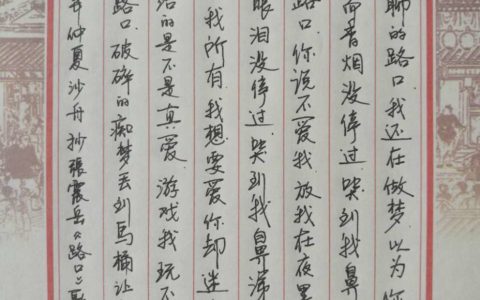 聊的路口我还在做梦以为你
而香烟没停过.哭到我鼻
路口.你说不爱我.放我在夜黑
眼泪没停过.哭到我鼻涕
我所有.我想要爱你却迷
给的是不是真爱.游戏我玩不
路口.破碎的痴梦丢到马桶让
仲夏沙舟抄張震岳《路口》